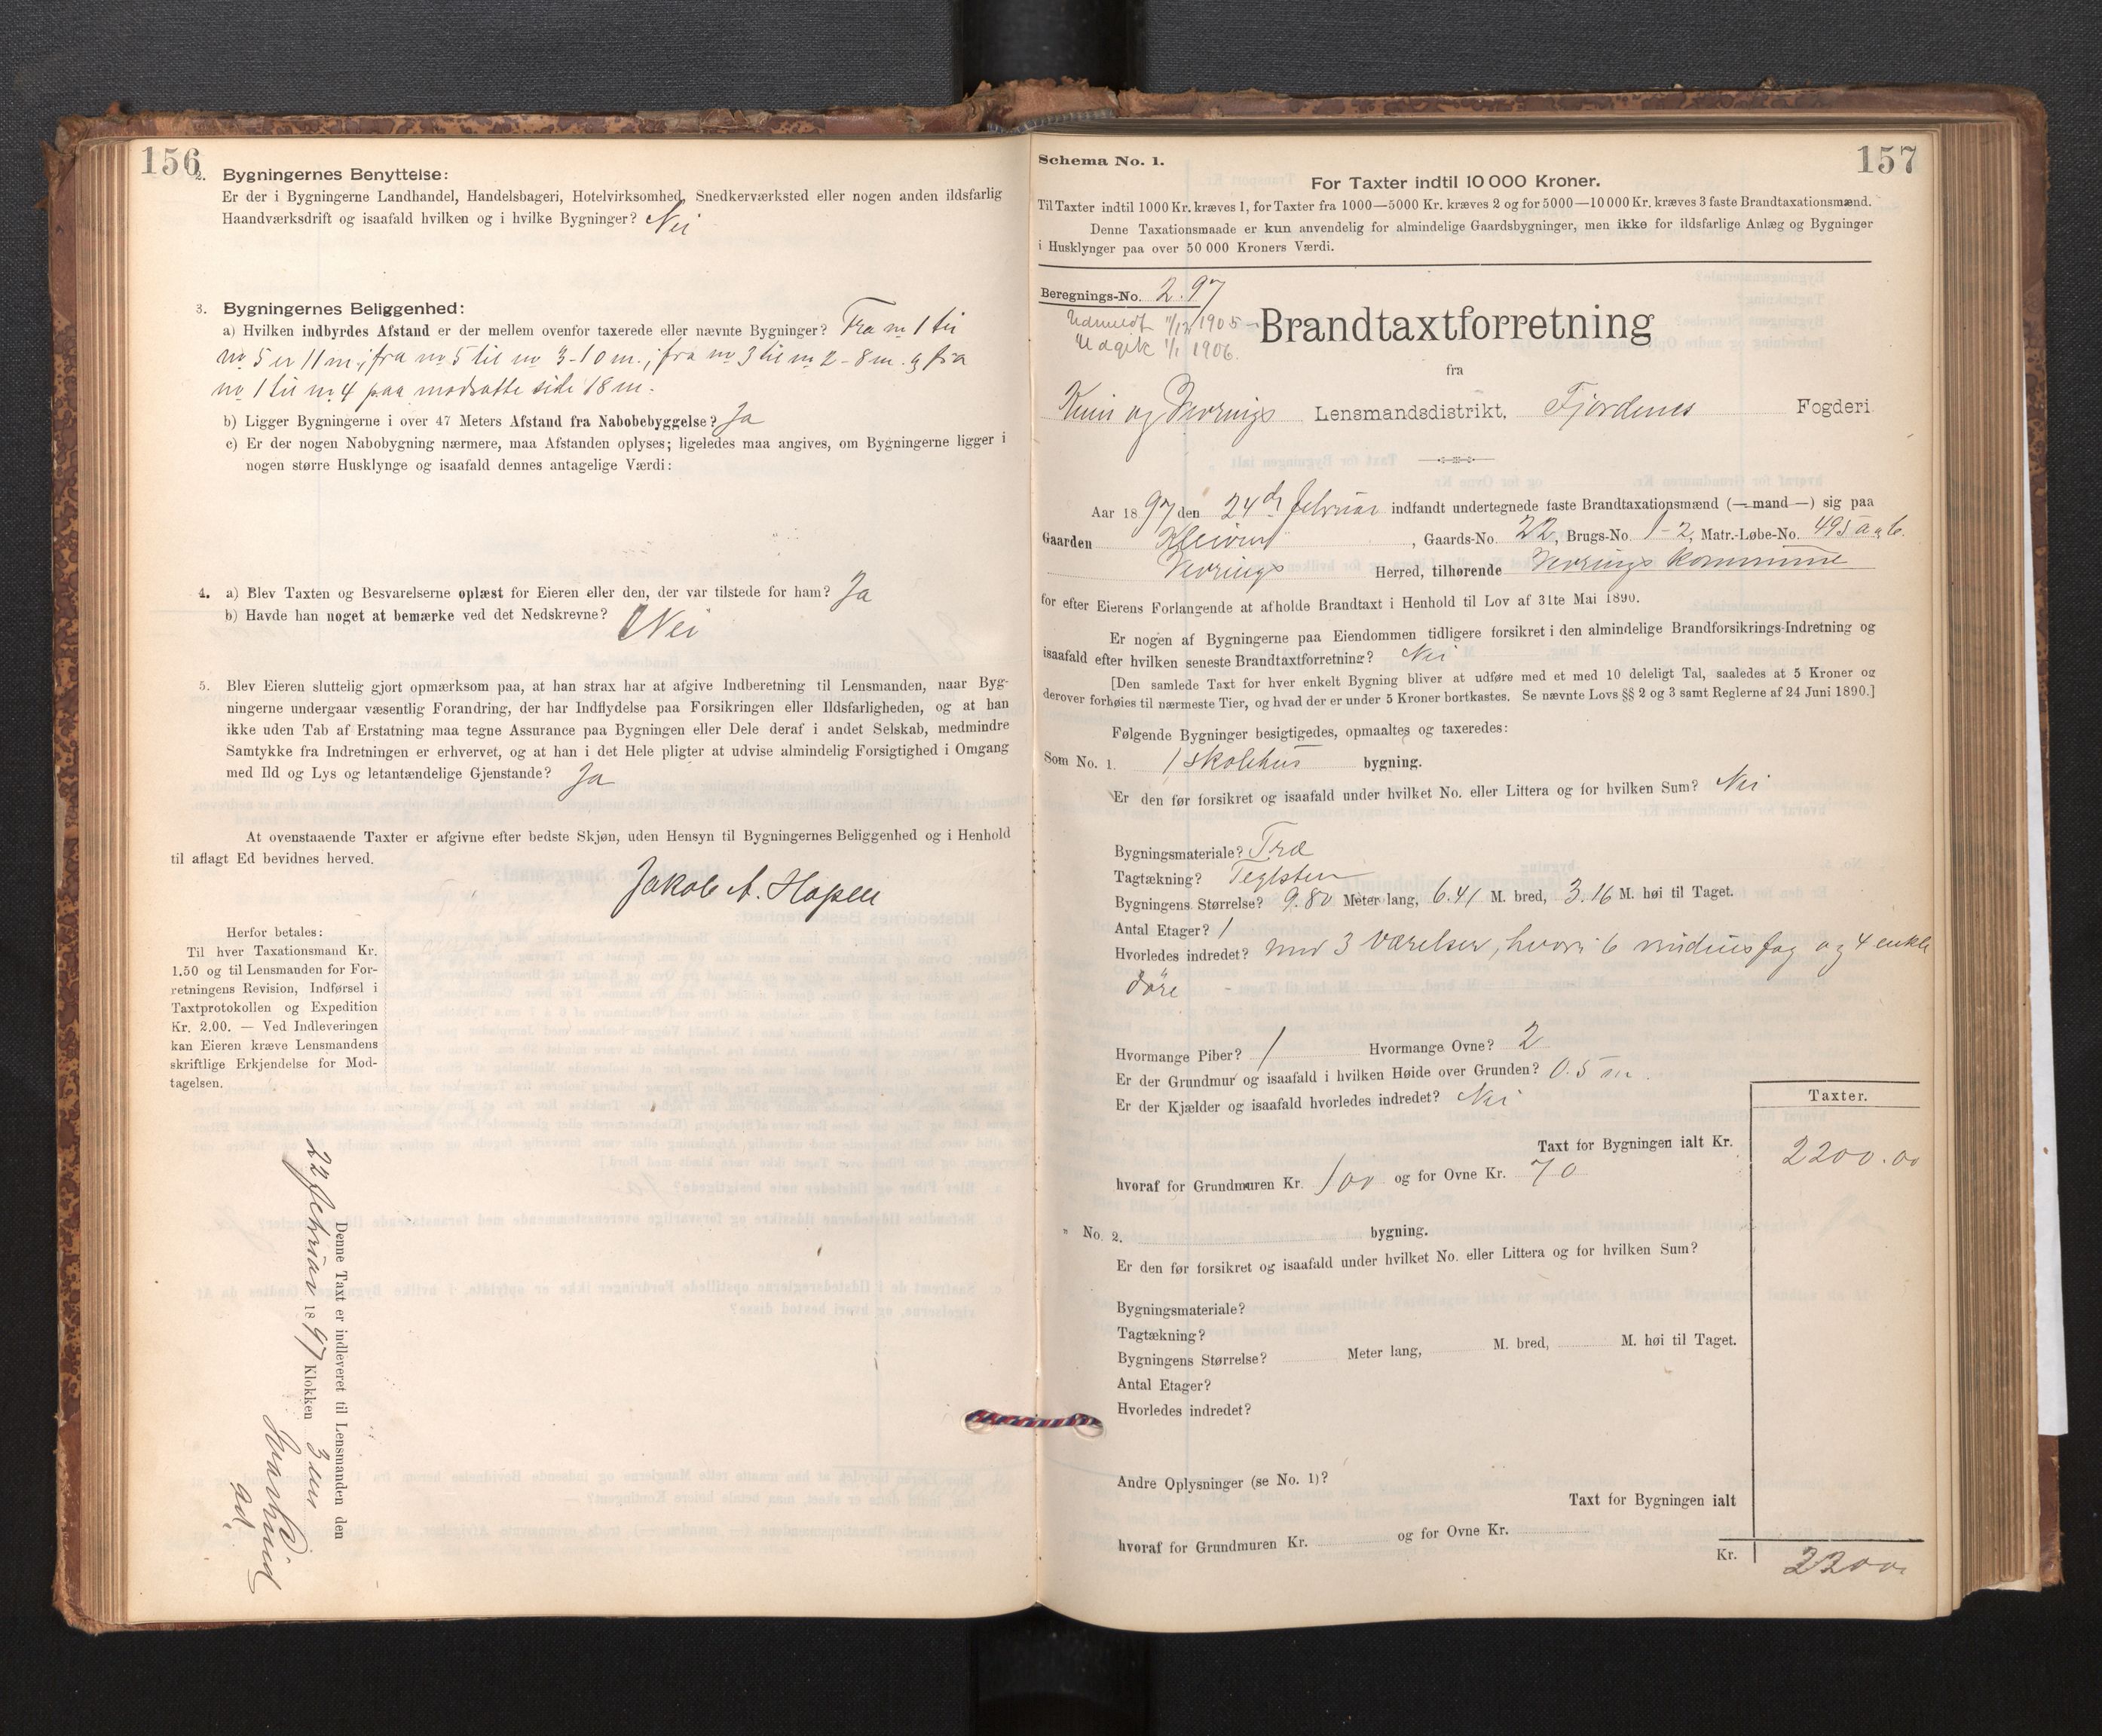 156
2. Bygningernes Benyttelse:
Er der i Bygningerne Landhandel, Handelsbageri, Hotelvirksomhed, Snedkerværksted eller nogen anden ildsfarlig
Haandværksdrift og isaafald hvilken og i hvilke Bygninger? Nei
3. Bygningernes Beliggenhed:
a) Hvilken indbyrdes Afstand er der mellem ovenfor taxerede eller nævnte Bygninger? Fra no 1 til
no 5 er 11 m.; fra no 5 til no 3 - 10 m.; fra no 3 til no 2 - 8 m. og fra
no 1 til no 4 paa modsatte side 18 m.
b) Ligger Bygningerne i over 47 Meters Afstand fra Nabobebyggelse? Ja
c) Er der nogen Nabobygning nærmere, maa Afstanden oplyses; ligeledes maa angives, om Bygningerne ligger i
nogen større Husklynge og isaafald dennes antagelige Værdi:
4. a) Blev Taxten og Besvarelserne oplæst for Eieren eller den, der var tilstede for ham? Ja
b) Havde han noget at bemærke ved det Nedskrevne? Nei
5. Blev Eieren sluttelig gjort opmærksom paa, at han strax har at afgive Indberetning til Lensmanden, naar Byg-
ningerne undergaar væsentlig Forandring, der har Indflydelse paa Forsikringen eller Ildsfarligheden, og at han
ikke uden Tab af Erstatning maa tegne Assurance paa Bygningen eller Dele deraf i andet Selskab, medmindre
Samtykke fra Indretningen er erhvervet, og at han i det Hele pligter at udvise almindelig Forsigtighed i Omgang
med Ild og Lys og letantændelige Gjenstande? Ja
At ovenstaaende Taxter er afgivne efter bedste Skjøn, uden Hensyn til Bygningernes Beliggenhed og i Henhold
til aflagt Ed bevidnes herved.
Jakob A. Hopen
Herfor betales:
Til hver Taxationsmand Kr.
1.50 og til Lensmanden for For-
retningens Revision, Indførsel i
Taxtprotokollen og Expedition
Kr. 2.00. — Ved Indleveringen
kan Eieren kræve Lensmandens
skriftlige Erkjendelse for Mod-
tagelsen.
Denne Taxt er indleveret til Lensmanden den
22 februar 1897 Klokken 3 em
ad.
157
Schema No. 1.
For Taxter indtil 10 000 Kroner.
Til Taxter indtil 1000 Kr. kræves 1, for Taxter fra 1000—5000 Kr. kræves 2 og for 5000—10 000 Kr. kræves 3 faste Brandtaxationsmænd.
Denne Taxationsmaade er kun anvendelig for almindelige Gaardsbygninger, men ikke for ildsfarlige Anlæg og Bygninger
i Husklynger paa over 50 000 Kroners Værdi.
Beregnings-No. 297
Udmeldt 11/12 1905 -
Udgik 1/1 1906.
Brandtaxtforretning
fra
Kinn og Lensmandsdistrikt, Fjordenes Fogderi
Aar 1897 den 24de februar indfandt undertegnede faste Brandtaxationsmænd (—mand—) sig paa
Gaarden , Gaards-No. 22, Brugs-No. 1-2, Matr.-Løbe-No. 495 a og b.
Herred, tilhørende kommune
for efter Eierens Forlangende at afholde Brandtaxt i Henhold til Lov af 31te Mai 1890.
Er nogen af Bygningerne paa Eiendommen tidligere forsikret i den almindelige Brandforsikrings-Indretning og
isaafald efter hvilken seneste Brandtaxtforretning? Nei
[Den samlede Taxt for hver enkelt Bygning bliver at udføre med et med 10 deleligt Tal, saaledes at 5 Kroner og
derover forhøies til nærmeste Tier, og hvad der er under 5 Kroner bortkastes. Se nævnte Lovs §§ 2 og 3 samt Reglerne af 24 Juni 1890.]
Følgende Bygninger besigtigedes, opmaaltes og taxeredes:
Som No. 1. 1 skolehus bygning.
Er den før forsikret og isaafald under hvilket No. eller Littera og for hvilken Sum? Nei
Bygningsmateriale? Træ
Tagtækning? Teglsten
Bygningens Størrelse? 9.80 Meter lang, 6.41 M. bred, 3.16 M. høi til Taget.
Antal Etager? 1
Hvorledes indredet? med 3 værelser, hvori 6 vinduesfag og 4 enkle
döre
Hvormange Piber? 1 Hvormange Ovne? 2
Er der Grundmur og isaafald i hvilken Høide over Grunden? 0.5 m.
Er der Kjælder og isaafald hvorledes indredet? Nei
Taxter.
Taxt for Bygningen ialt Kr. 2200.00
hvoraf for Grundmuren Kr. 100 og for Ovne Kr. 70
" No. 2. bygning.
Er den før forsikret og isaafald under hvilket No. eller Littera og for hvilken Sum?
Bygningsmateriale?
Tagtækning?
Bygningens Størrelse? Meter lang, M. bred, M. høi til Taget.
Antal Etager?
Hvorledes indredet?
Andre Oplysninger (se No. 1)?
Taxt for Bygningen ialt
hvoraf for Grundmuren Kr. og for Ovne Kr.
Kr. 2200.